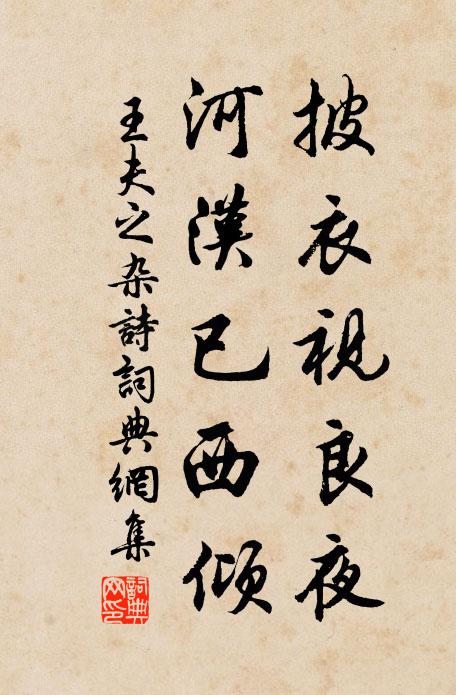 披衣視良夜
河漢已西傾
王夫之杂詩詞典網集
詞典网印